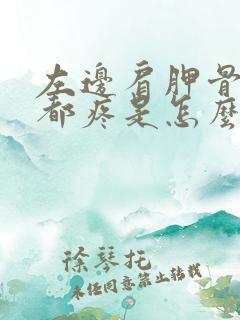 左邊肩胛骨
都疼是怎麼
徐琴托
未经同意禁止转载